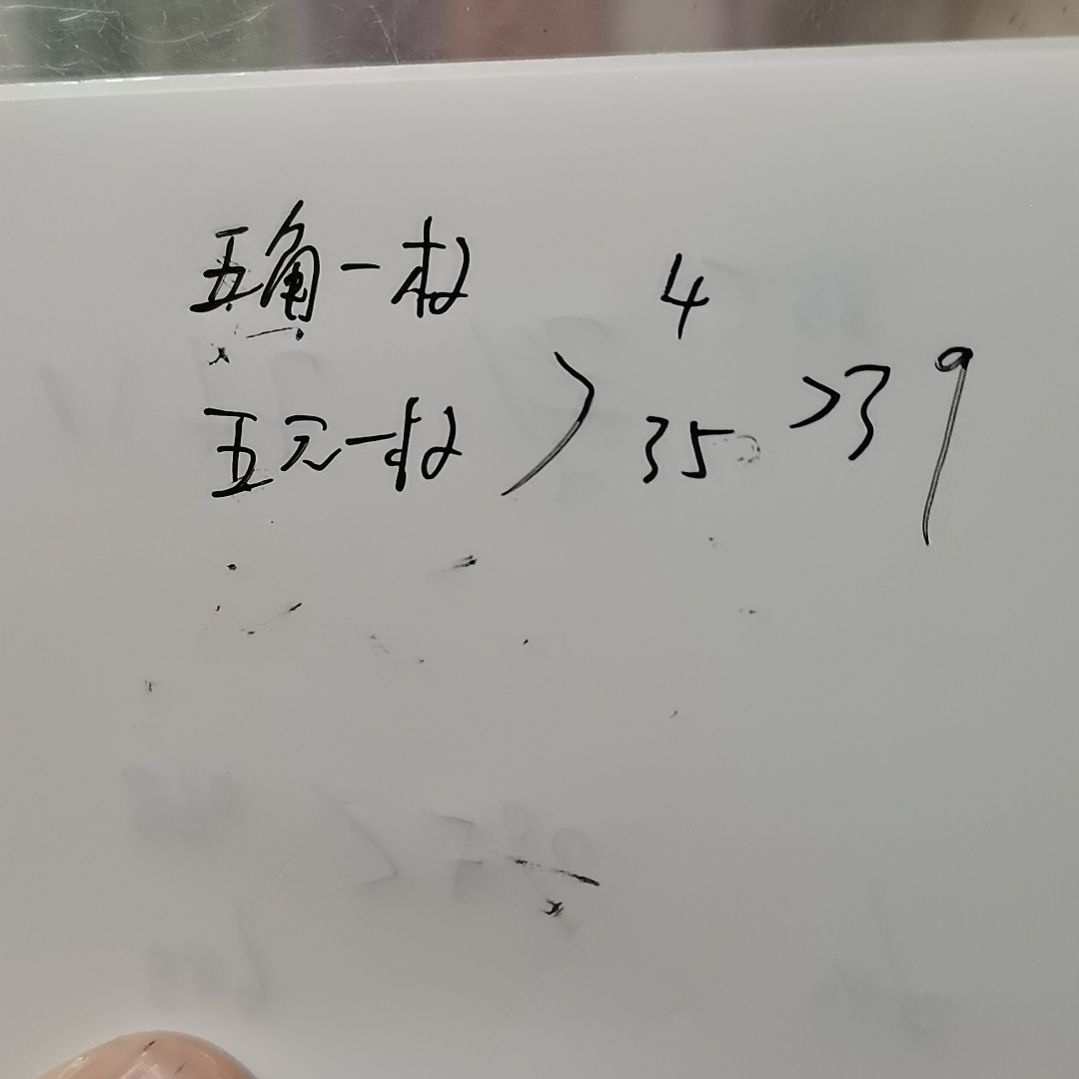 五角一枚 4
五元一枚 > 35 >39